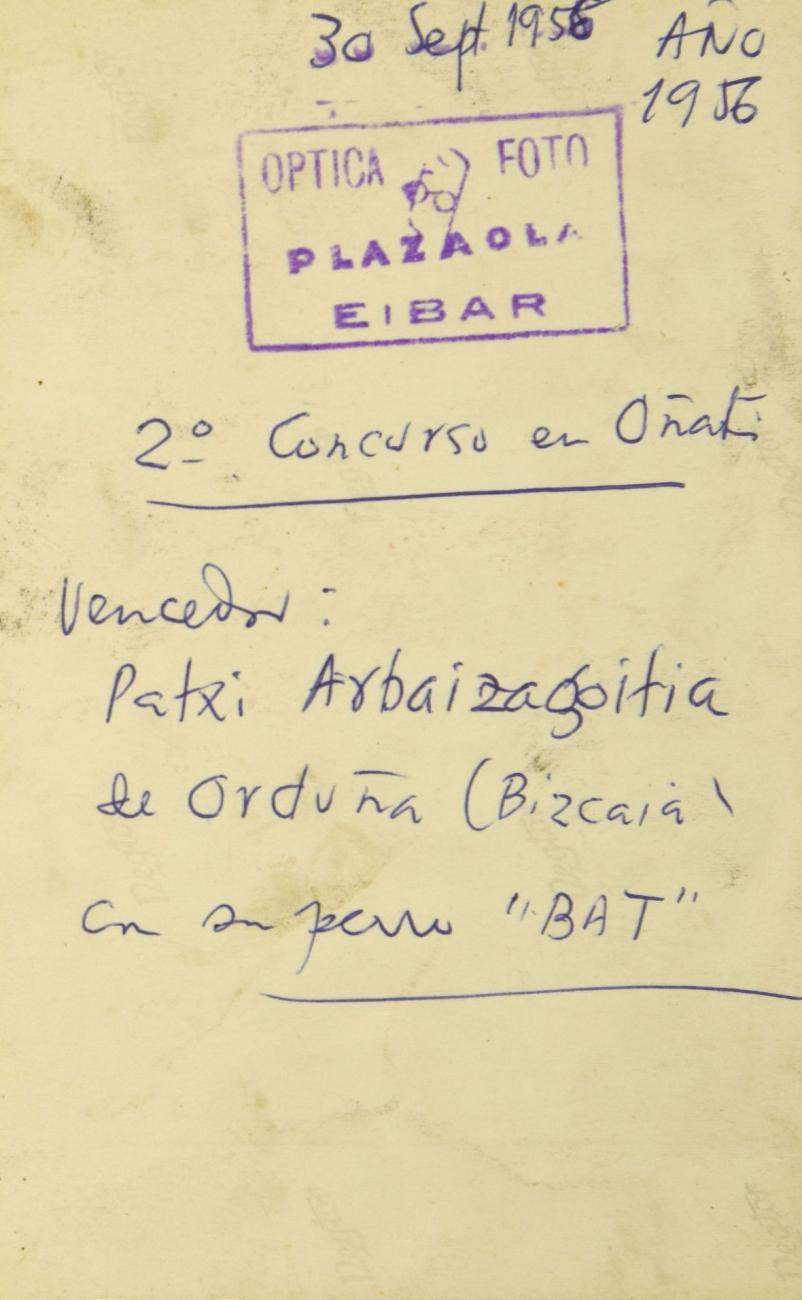 30 Sept. 1956 AÑO
1956
OPTICA FOTO
PLAZAOLA
EIBAR
2º Concurso en Oñati
Vencedor:
Patxi Arbaizagoitia
de Orduña (Bizcaia)
con su perro "BAT"